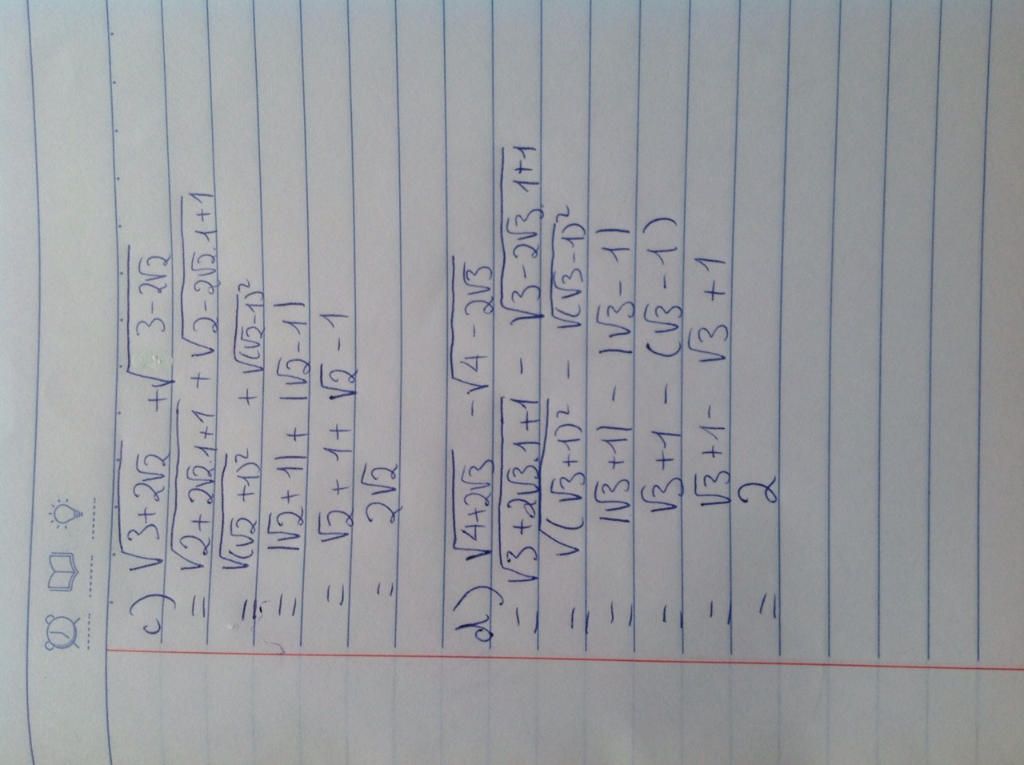 c) √(3+2√2) + √(3-2√2)
= √(2+2√2.1+1) + √(2-2√2.1+1)
= √((√2+1)²) + √((√2-1)²)
= |√2+1| + |√2-1|
= √2 + 1 + √2 - 1
= 2√2
d) √(4+2√3) - √(4-2√3)
= √(3+2√3.1+1) - √(3-2√3.1+1)
= √((√3+1)²) - √((√3-1)²)
= |√3+1| - |√3-1|
= √3+1 - (√3-1)
= √3+1 - √3+1
= 2